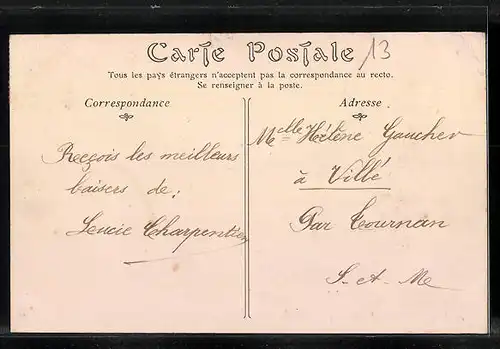 Carte Postale
13
Tous les pays étrangers n'acceptent pas la correspondance au recto.
Se renseigner à la poste.
Correspondance
Adresse
Reçois les meilleurs
baisers de :
Lucie Charpentier
Melle Hélène Gaucher
à Villé
Par Tournan
S-et-Me